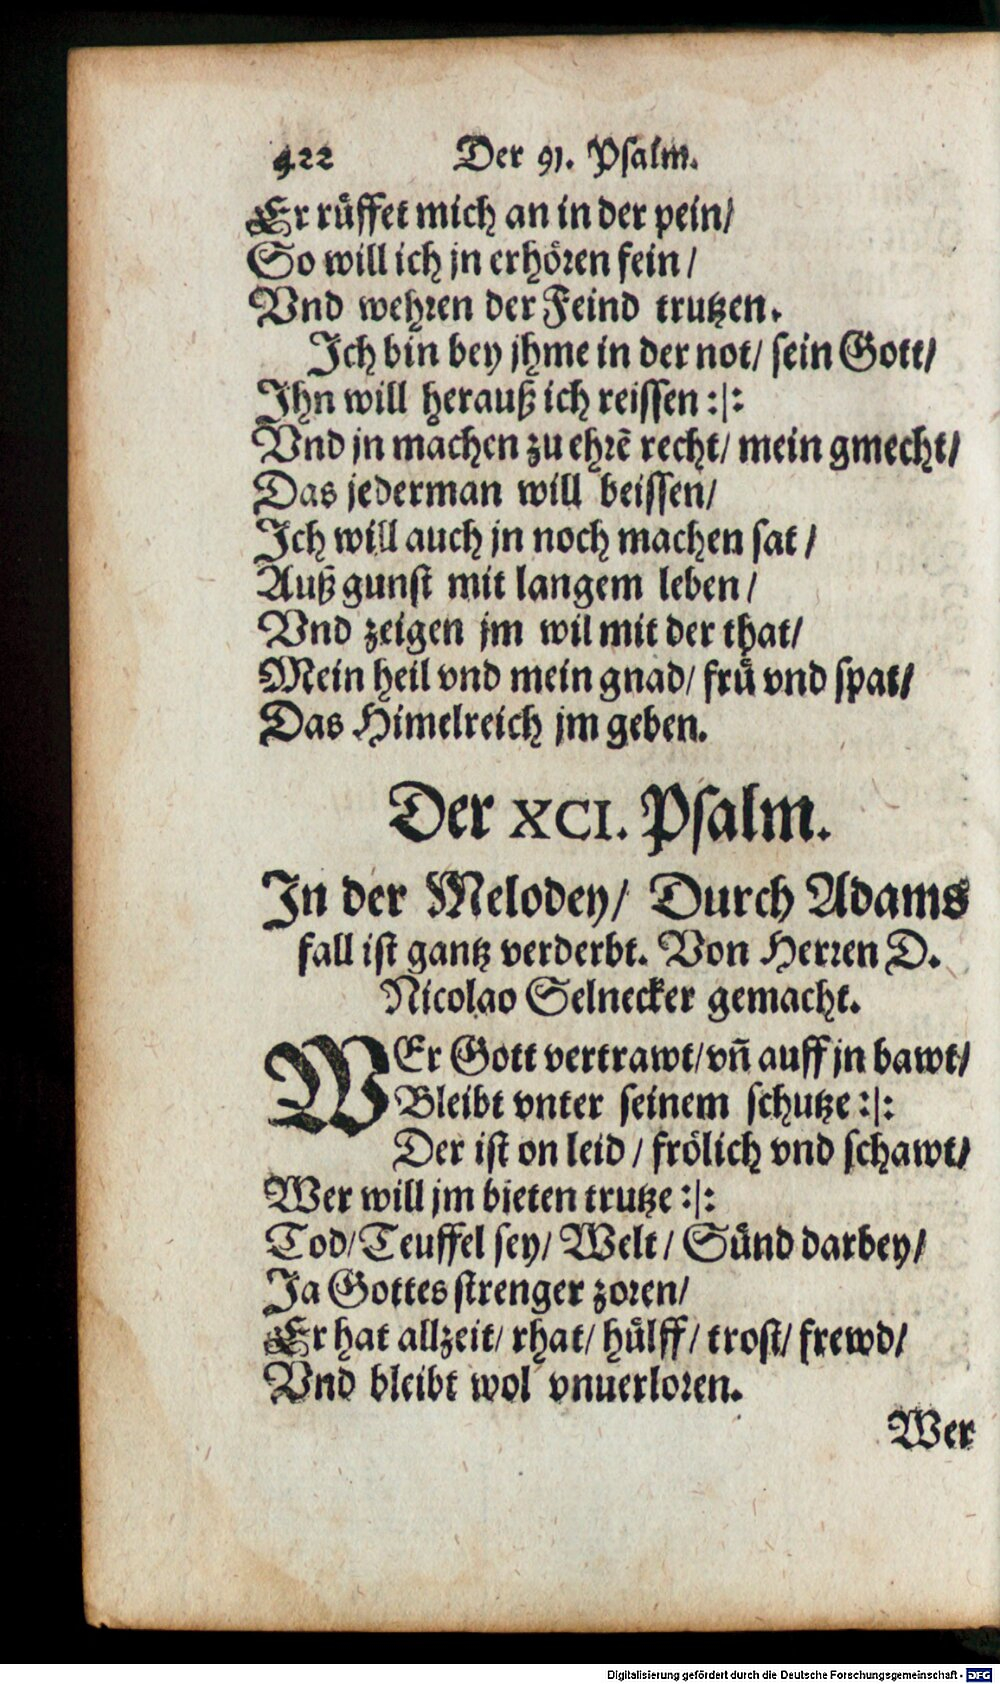 422 Der 91. Psalm.
Er ruͤffet mich an in der pein/
So will ich jn erhoͤren fein/
Vnd wehren der Feind trutzen.
Ich bin bey jhme in der not/ sein Gott/
Ihn will herauß ich reissen :|:
Vnd jn machen zu ehrẽ recht/ mein gmecht/
Das jederman will beissen/
Ich will auch jn noch machen sat/
Auß gunst mit langem leben/
Vnd zeigen jm wil mit der that/
Mein heil vnd mein gnad/ fruͤ vnd spat/
Das Himelreich jm geben.
Der XCI. Psalm.
In der Melodey/ Durch Adams
fall ist gantz verderbt. Von Herren D.
Nicolao Selnecker gemacht.
WEr Gott vertrawt/ vñ auff jn bawt/
Bleibt vnter seinem schutze :|:
Der ist on leid/ froͤlich vnd schawt/
Wer will jm bieten trutze :|:
Tod/ Teuffel sey/ Welt/ Suͤnd darbey/
Ja Gottes strenger zoren/
Er hat allzeit/ rhat/ huͤlff/ trost/ frewd/
Vnd bleibt wol vnuerloren.
Wer
Digitalisierung gefördert durch die Deutsche Forschungsgemeinschaft - DFG